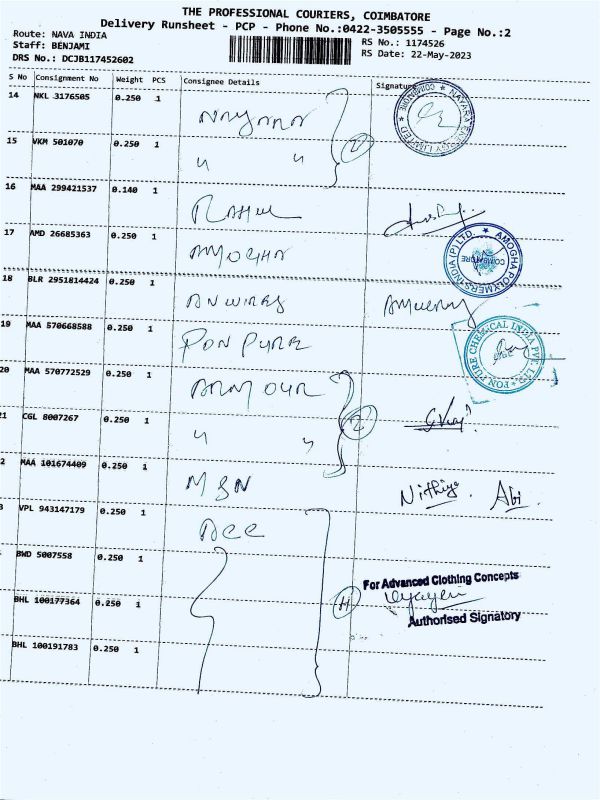 THE PROFESSIONAL COURIERS, COIMBATORE
Delivery Runsheet - PCP - Phone No.:0422-3505555 - Page No.:2
Route: NAVA INDIA
Staff: BENJAMI
DRS No.: DCJB117452602
RS No.: 1174526
RS Date: 22-May-2023
S No Consignment No Weight PCS Consignee Details Signature
14 NKL 3176505 0.250 1 NAYARA
NAYARA ENERGY LIMITED ★ COIMBATORE ★
15 VKM 501070 0.250 1 " " 2
16 MAA 299421537 0.140 1 RAHUL
17 AMD 26685363 0.250 1 AMOGHA
AMOGHA POLYMERS INDIA (P) LTD. ★ COIMBATORE
18 BLR 2951814424 0.250 1
19 MAA 570668588 0.250 1 PON PURE
PON PURE CHEMICAL INDIA PVT. LTD
20 MAA 570772529 0.250 1 ARMOUR
21 CGL 8007267 0.250 1 " " 2
2 MAA 101674409 0.250 1 MSN Nithiya. Abi.
VPL 943147179 0.250 1 ACC
BWD 5007558 0.250 1
For Advanced Clothing Concepts
BHL 100177364 0.250 1
Authorised Signatory
BHL 100191783 0.250 1